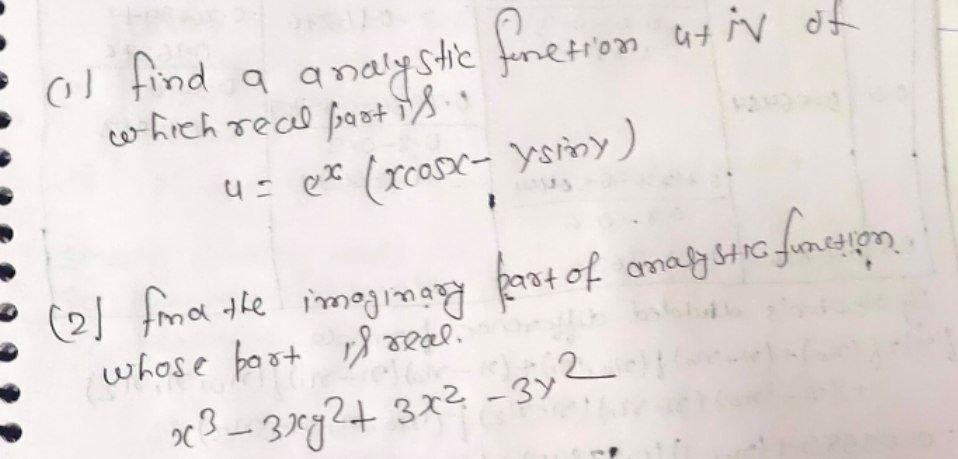 (1) find a analystic function u + iv of
which real part is :
u = e^x (x cosx - y siny)
(2) find the imaginary part of analystic function
whose part is real.
x³ - 3xy² + 3x² - 3y²